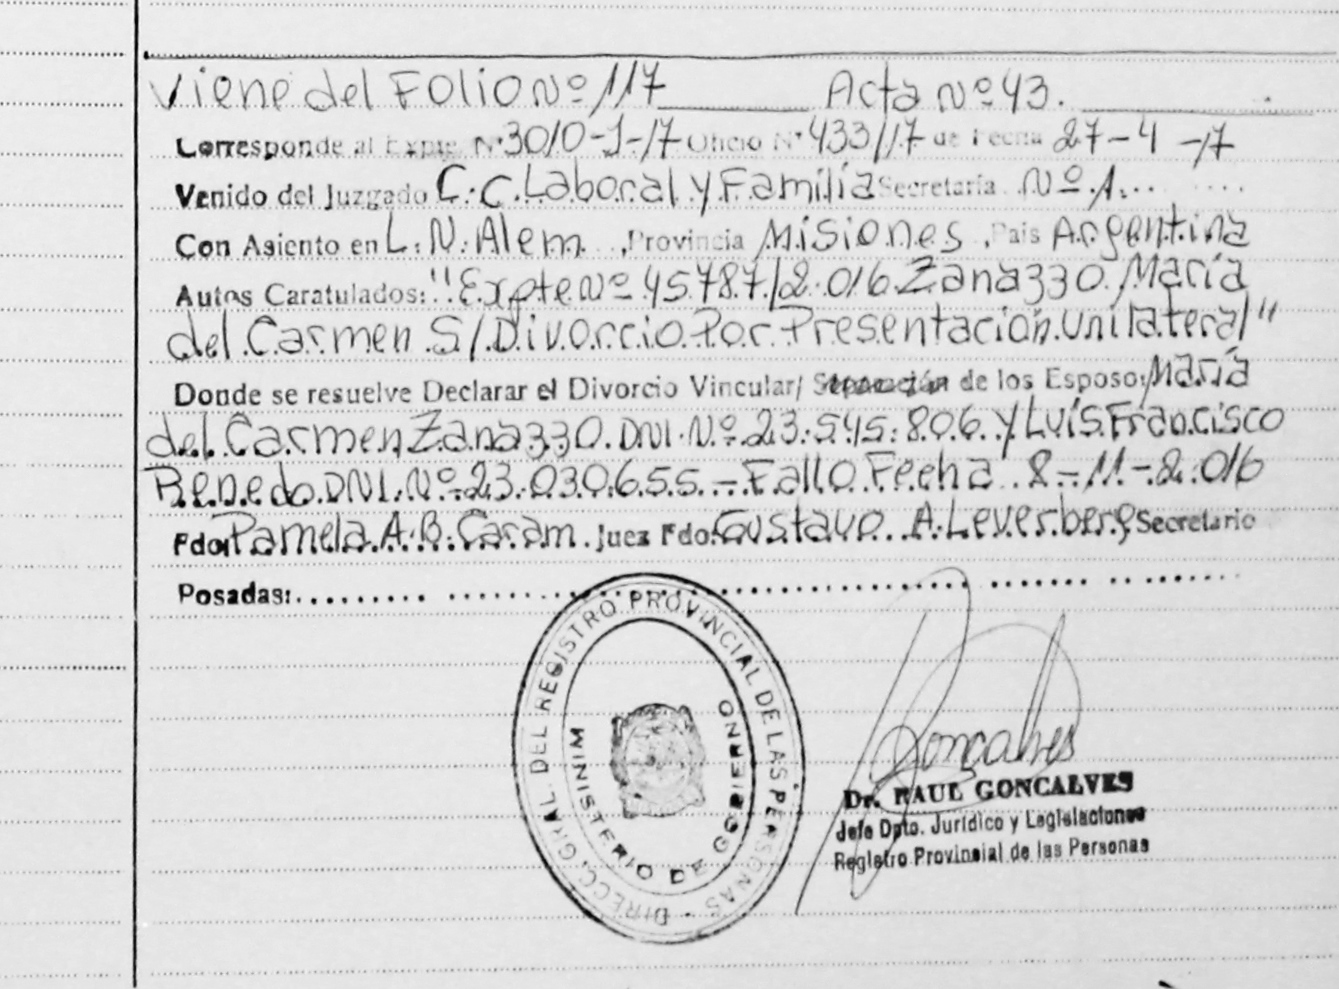 Viene del Folio Nº 117 Acta Nº 43.
Corresponde al Expte. Nº 3010-J-17 Oficio Nº 433/17 de Fecha 27-4-17
Venido del Juzgado C.C. Laboral y Familia Secretaría Nº 1.
Con Asiento en L.N. Alem, Provincia Misiones, País Argentina
Autos Caratulados: "Expte Nº 45787/2.016 Zanazzo María
del Carmen S/Divorcio Por Presentación unilateral"
Donde se resuelve Declarar el Divorcio Vincular/ Separación de los Esposo: María
del Carmen Zanazzo DNI.Nº 23.545.806 y Luís Francisco
Benedo DNI.Nº 23.030.655.- Fallo Fecha 8-11-2.016
Fdo: Pamela A.B. Caram. Juez Fdo: Gustavo A. Leverberg Secretario
Posadas:
DIRECC. GRAL. DEL REGISTRO PROVINCIAL DE LAS PERSONAS
MINISTERIO DE GOBIERNO
Goncalves
Dr. RAUL GONCALVES
Jefe Dpto. Jurídico y Legislaciones
Registro Provincial de las Personas